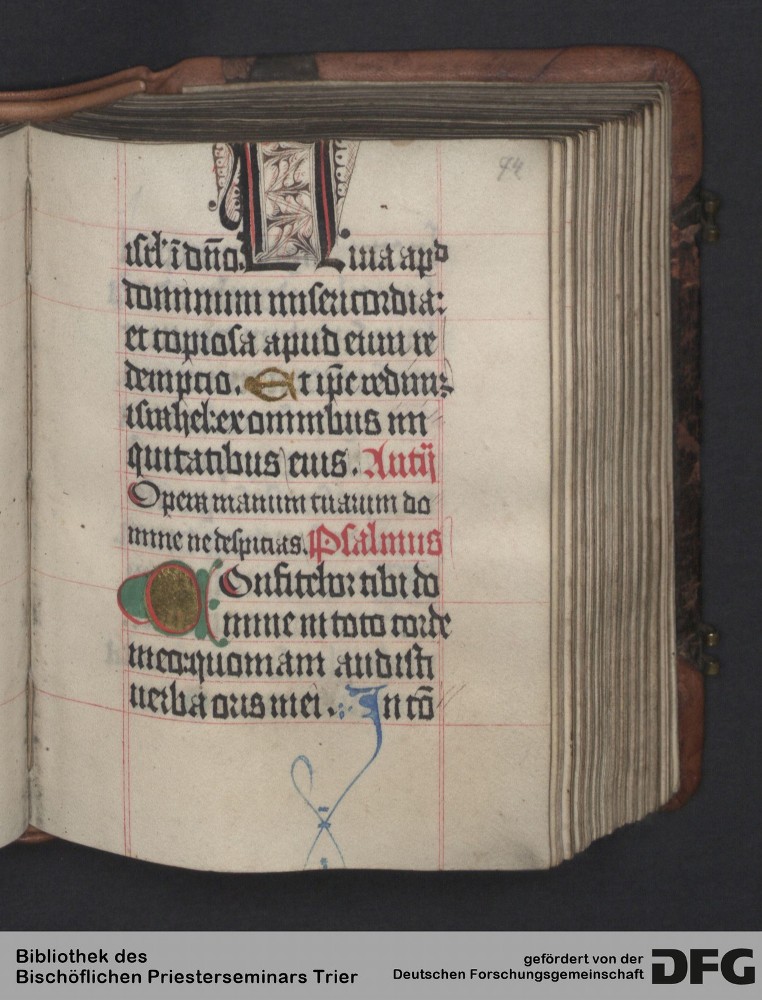 94
isrl' ī dn̄o. Quia apd
dominum misericordia:
et copiosa apud eum re
dempcio. Et ip̄e redimꝫ
israhel: ex omnibus ini
quitatibus eius. Antȳ
Opera manuum tuarum do
mine ne despicias. Psalmus
Confitebor tibi do
mine in toto corde
meo: quoniam audisti
uerba oris mei. In cō
Bibliothek des
Bischöflichen Priesterseminars Trier
gefördert von der
Deutschen Forschungsgemeinschaft
DFG